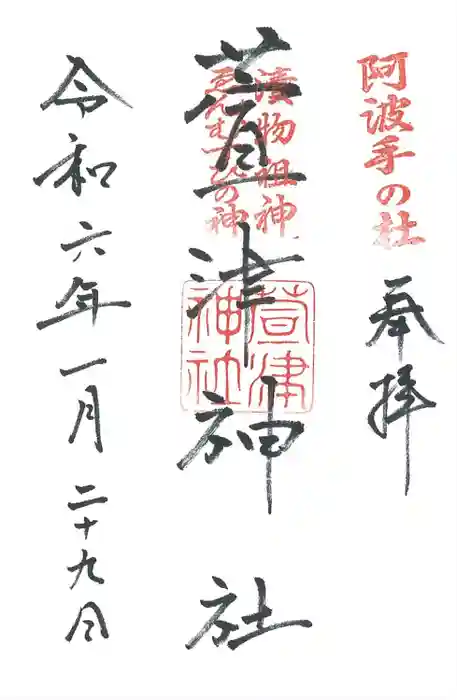 阿波手の杜
奉拝
漬物祖神
ゑんむすびの神
萱津神社
萱津
神社
令和六年一月二十九日